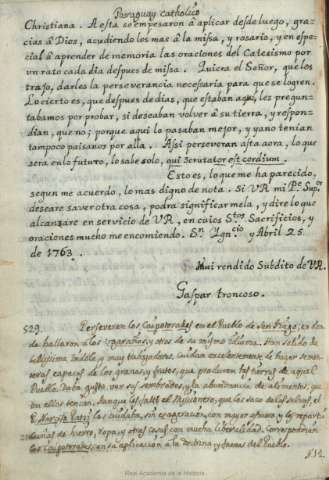 Paraguay catholico
Christiana. A esta se empesaron â aplicar desde luego, gra-
cias â Dios, acudiendo los mas â la missa, y rosario, y en espe-
cial â aprender de memoria las oraciones del Catecismo por
un rato cada dia despues de missa. Quiera el Señor, que los
trajo, darles la perseverancia necessaria para que se logren.
Lo cierto es, que despues de dias, que estaban aqui, les pregun-
tabamos por probar, si deseaban volver â su tierra, y respon-
dian, que no; porque aqui lo passaban mejor, y ya no tenian
tampoco paisanos por alla. Assi perseveran asta aora, lo que
sera en lo futuro, lo sabe solo, qui Scrutator est cordium.
Esto es, lo que me ha parecido,
segun me acuerdo, lo mas digno de nota. Si VR mi Pe. Supor
deseare saver otra cosa, podrà significarmela, y dire lo que
alcanzare en servicio de VR, en cuios Stos. Sacrificios, y
oraciones mucho me encomiendo. Sn. Ignacio y Abril 25
de 1763.
Mui rendido Subdito de VR.
Gaspar troncoso.
529. Perseveran los en el Pueblo de San en don-
de hallaron a los y otros de su mismo idioma. Han salido de
bellissima indole y muy trabajadores, cuidan de hacer semen-
teras capaces de los granos, y frutos, que producen las tierras de aquel
Pueblo. Daba gusto, ver sus sembrados, y la abundancia de alimentos, que
en ellos tenian. Aunque les faltó el Missionero, que los saco de las selvas, el
P. Narciso Patzi los cuidaba, sin con mayor afecto y les repartia
de hierro, ropa, y otras cosas con mucha liberalidad. Correspondian
los con su aplicacion a la doctrina y faenas del Pueblo.
Real Academia de la Historia